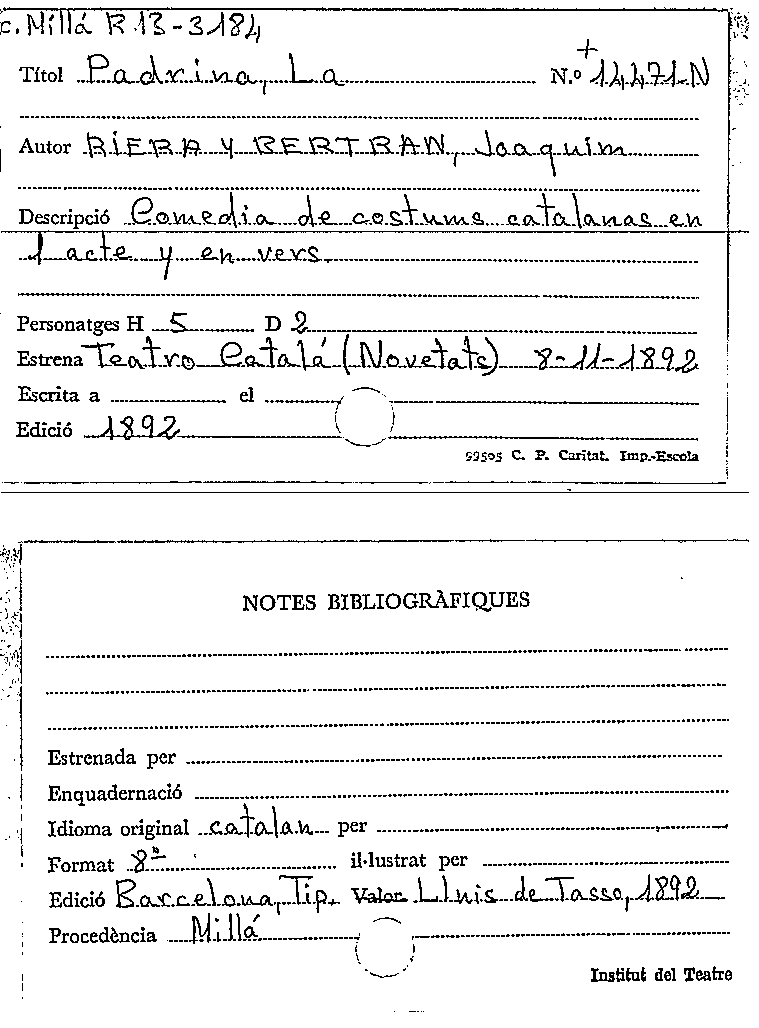 c. Millá R 13-3184
Títol Padrina, La N.º 14471-N
+
Autor RIERA Y BERTRAN, Joaquim
Descripció Comedia de costums catalanas en
1 acte y en vers.
Personatges H 5 D 2
Estrena Teatro Catalá (Novetats) 8-11-1892
Escrita a el
Edició 1892
99505 C. P. Caritat. Imp.-Escola
NOTES BIBLIOGRÀFIQUES
Estrenada per
Enquadernació
Idioma original catalan per
Format 8º il·lustrat per
Edició Barcelona, Tip. Valor Lluis de Tasso, 1892
Procedència Millá
Institut del Teatre